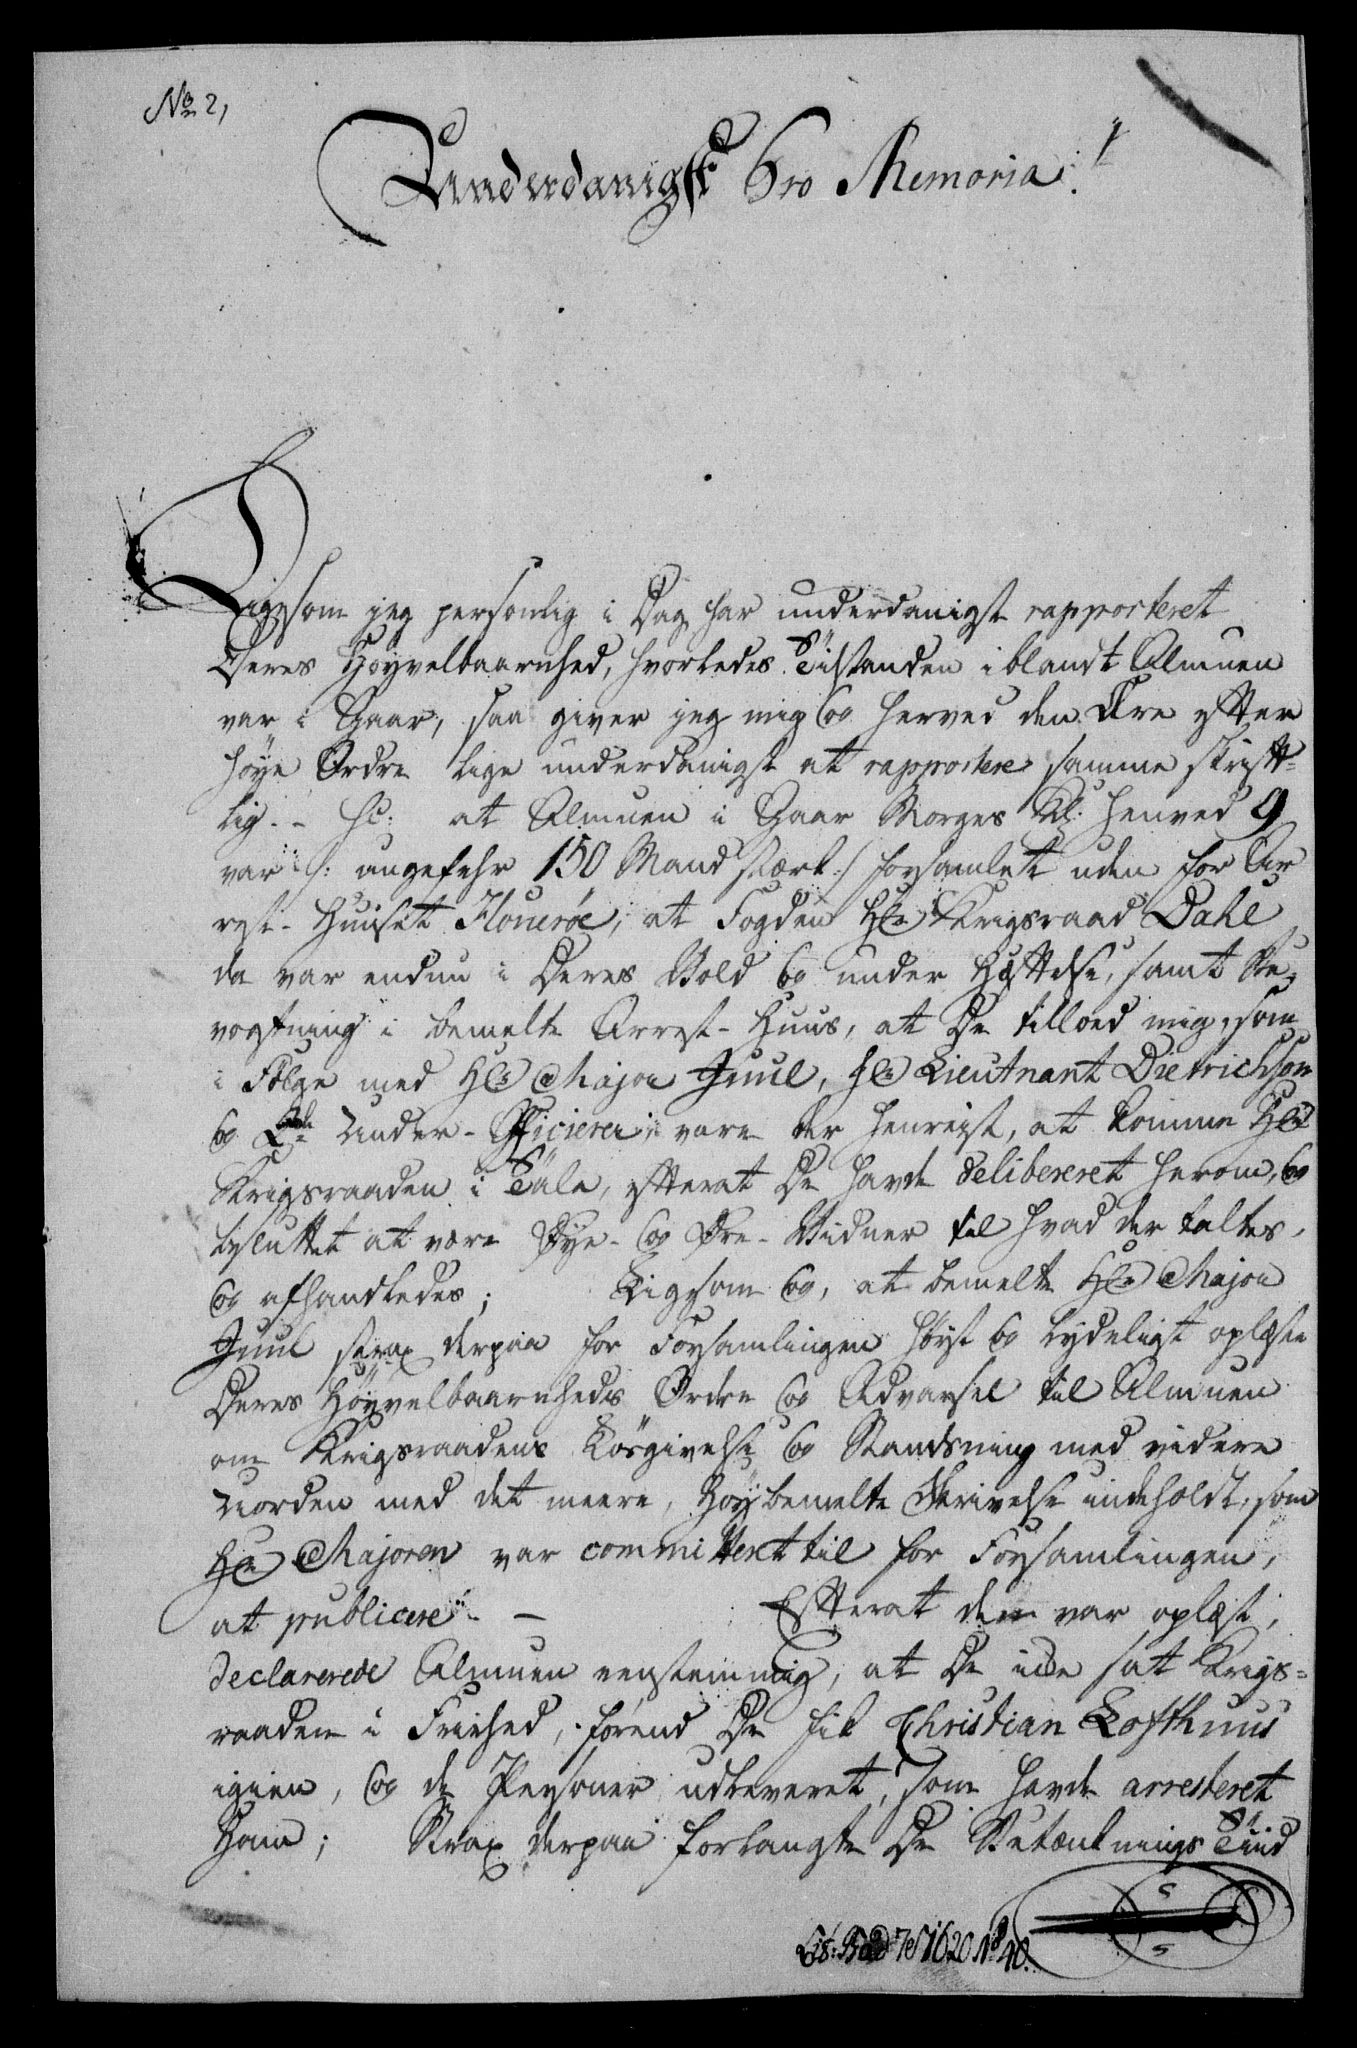 No 2,
Underdanigst Pro Memoria!
Ligesom jeg personlig i Dag har underdanigst rapporteret
Deres Høyvelbaarnhed, hvorledes Tilstanden iblandt Almuen
var i Gaar, saa giver jeg mig og herved den Ære efter
høye Ordre lige underdanigst at rapportere samme skrift-
lig. - at Almuen i Gaar Morges Kl: henved 9
var /: ungefehr 150 Mand stærk :/ forsamlet uden for Ar
rest-Huuset at Fogden Hr Krigsraad Dahl
da var endnu i Deres Vold og under Hæftelse, samt Be-
vogtning i bemelte Arrest-Huus, at De tillod mig, som
i Følge med Hr Major Juul, Hr Lieutnant Dietrichson
og Under-Officierer vare der henreist, at komme Hr
Krigsraaden i Tale, efterat De havde delibereret herom, og
besluttet at være Øye- og Øre-Vidner til hvad der taltes,
og afhandledes; Ligesom og, at bemelte Hr Major
Juul strax derpaa for Forsamlingen høyt og lydeligt oplæste
Deres Høyvelbaarnheds Ordre og Advarsel til Almuen
om Krigsraadens Løsgivelse og Standsning med videre
Uorden med det meere, Høybemelte Skrivelse indeholdt, som
Hr Majoren var committeret til for Forsamlingen,
at publicere. - - Efterat den var oplæst,
declarerede Almuen eenstemmig, at De icke sat Krigs-
raaden i Friehed, førend De fik Christian Lofthuus
igien, og de Personer udleveret, som havde arresteret
Ham; Strax derpaa forlangte De Betænknings Tiid